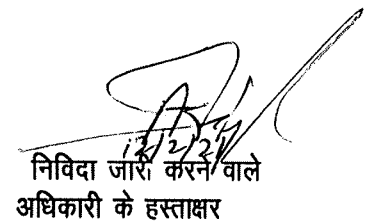 निविदा जारी करने वाले
अधिकारी के हस्ताक्षर